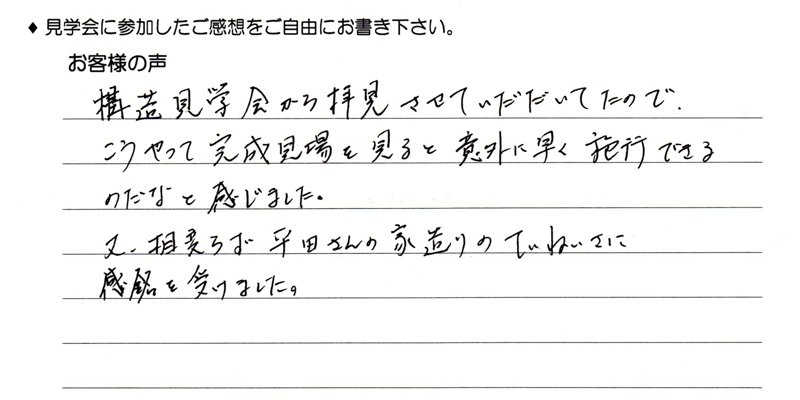 ♦ 見学会に参加したご感想をご自由にお書き下さい。
お客様の声
構造見学会から拝見させていただいてたので、
こうやって完成見場を見ると意外に早く施行できる
のだなと感じました。
又、相変らず平田さんの家造りのていねいさに
感銘を受けました。